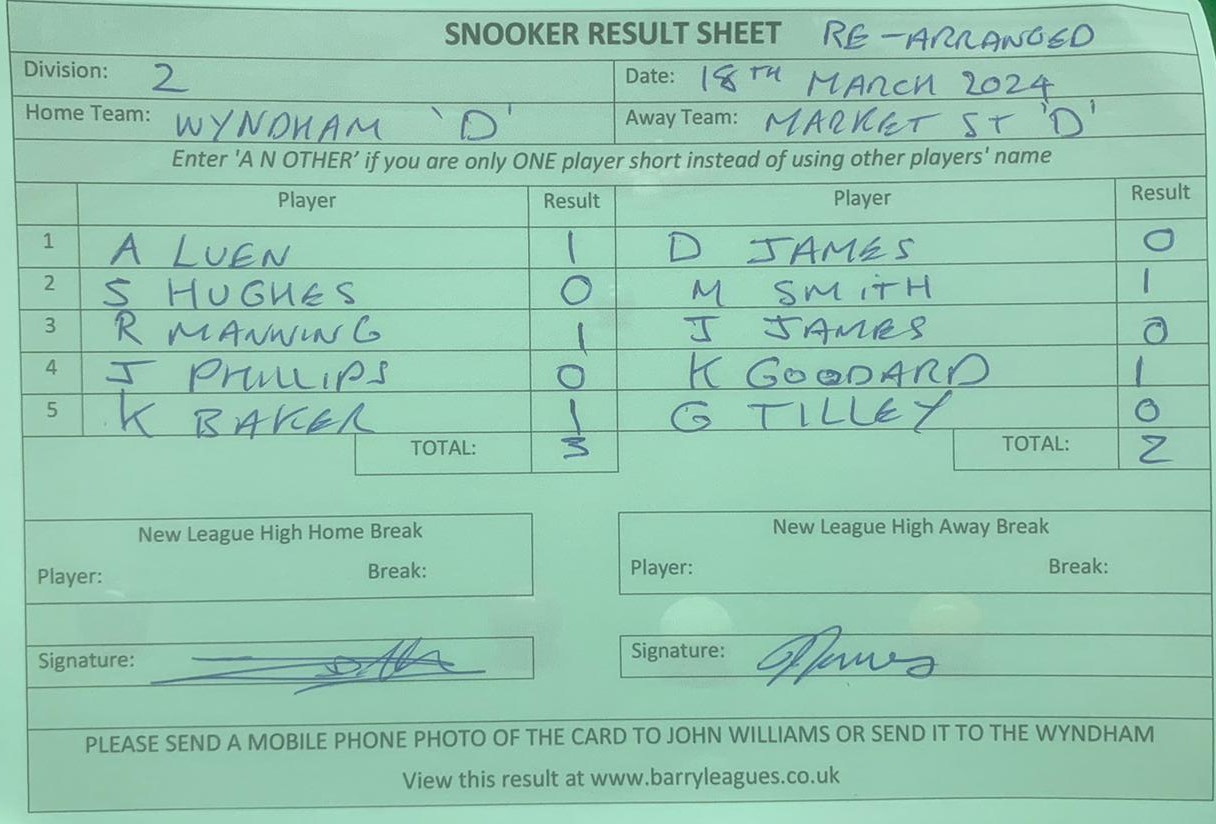 SNOOKER RESULT SHEET RE-ARRANGED
Division: 2 Date: 18TH MARCH 2024
Home Team: WYNDHAM 'D' Away Team: MARKET ST 'D'
Enter 'A N OTHER' if you are only ONE player short instead of using other players' name
Player Result Player Result
1 A LUEN 1 D JAMES 0
2 S HUGHES 0 M SMITH 1
3 R MANNING 1 J JAMES 0
4 J PHILLIPS 0 K GOODARD 1
5 K BAKER 1 G TILLEY 0
TOTAL: 3 TOTAL: 2
New League High Home Break New League High Away Break
Player: Break: Player: Break:
Signature: Signature:
PLEASE SEND A MOBILE PHONE PHOTO OF THE CARD TO JOHN WILLIAMS OR SEND IT TO THE WYNDHAM
View this result at www.barryleagues.co.uk